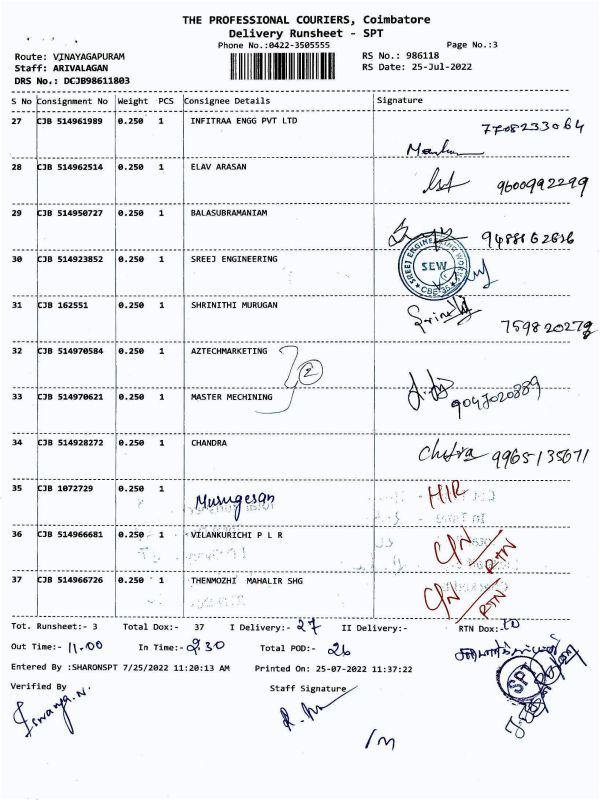 THE PROFESSIONAL COURIERS, Coimbatore
Delivery Runsheet - SPT
Phone No.:0422-3505555 Page No.:3
Route: VINAYAGAPURAM RS No.: 986118
Staff: ARIVALAGAN RS Date: 25-Jul-2022
DRS No.: DCJB98611803
S No Consignment No Weight PCS Consignee Details Signature
27 CJB 514961989 0.250 1 INFITRAA ENGG PVT LTD 7708233064
28 CJB 514962514 0.250 1 ELAV ARASAN 9600992299
29 CJB 514950727 0.250 1 BALASUBRAMANIAM
30 CJB 514923852 0.250 1 SREEJ ENGINEERING SREEJ ENGINEERING WORKS SEW
31 CJB 162551 0.250 1 SHRINITHI MURUGAN 759820278
32 CJB 514970584 0.250 1 AZTECHMARKETING
2
33 CJB 514970621 0.250 1 MASTER MECHINING 9047020889
34 CJB 514928272 0.250 1 CHANDRA Chitra 9965135671
35 CJB 1072729 0.250 1 Murugesan HIR
36 CJB 514966681 0.250 1 VILANKURICHI P L R C/N RTN
37 CJB 514966726 0.250 1 THENMOZHI MAHALIR SHG C/N RTN
Tot. Runsheet:- 3 Total Dox:- 37 I Delivery:- 27 II Delivery:- RTN Dox:- 10
Out Time:- 11.00 In Time:- 9.30 Total POD:- 26
Entered By :SHARONSPT 7/25/2022 11:20:13 AM Printed On: 25-07-2022 11:37:22
SPT
Verified By Staff Signature